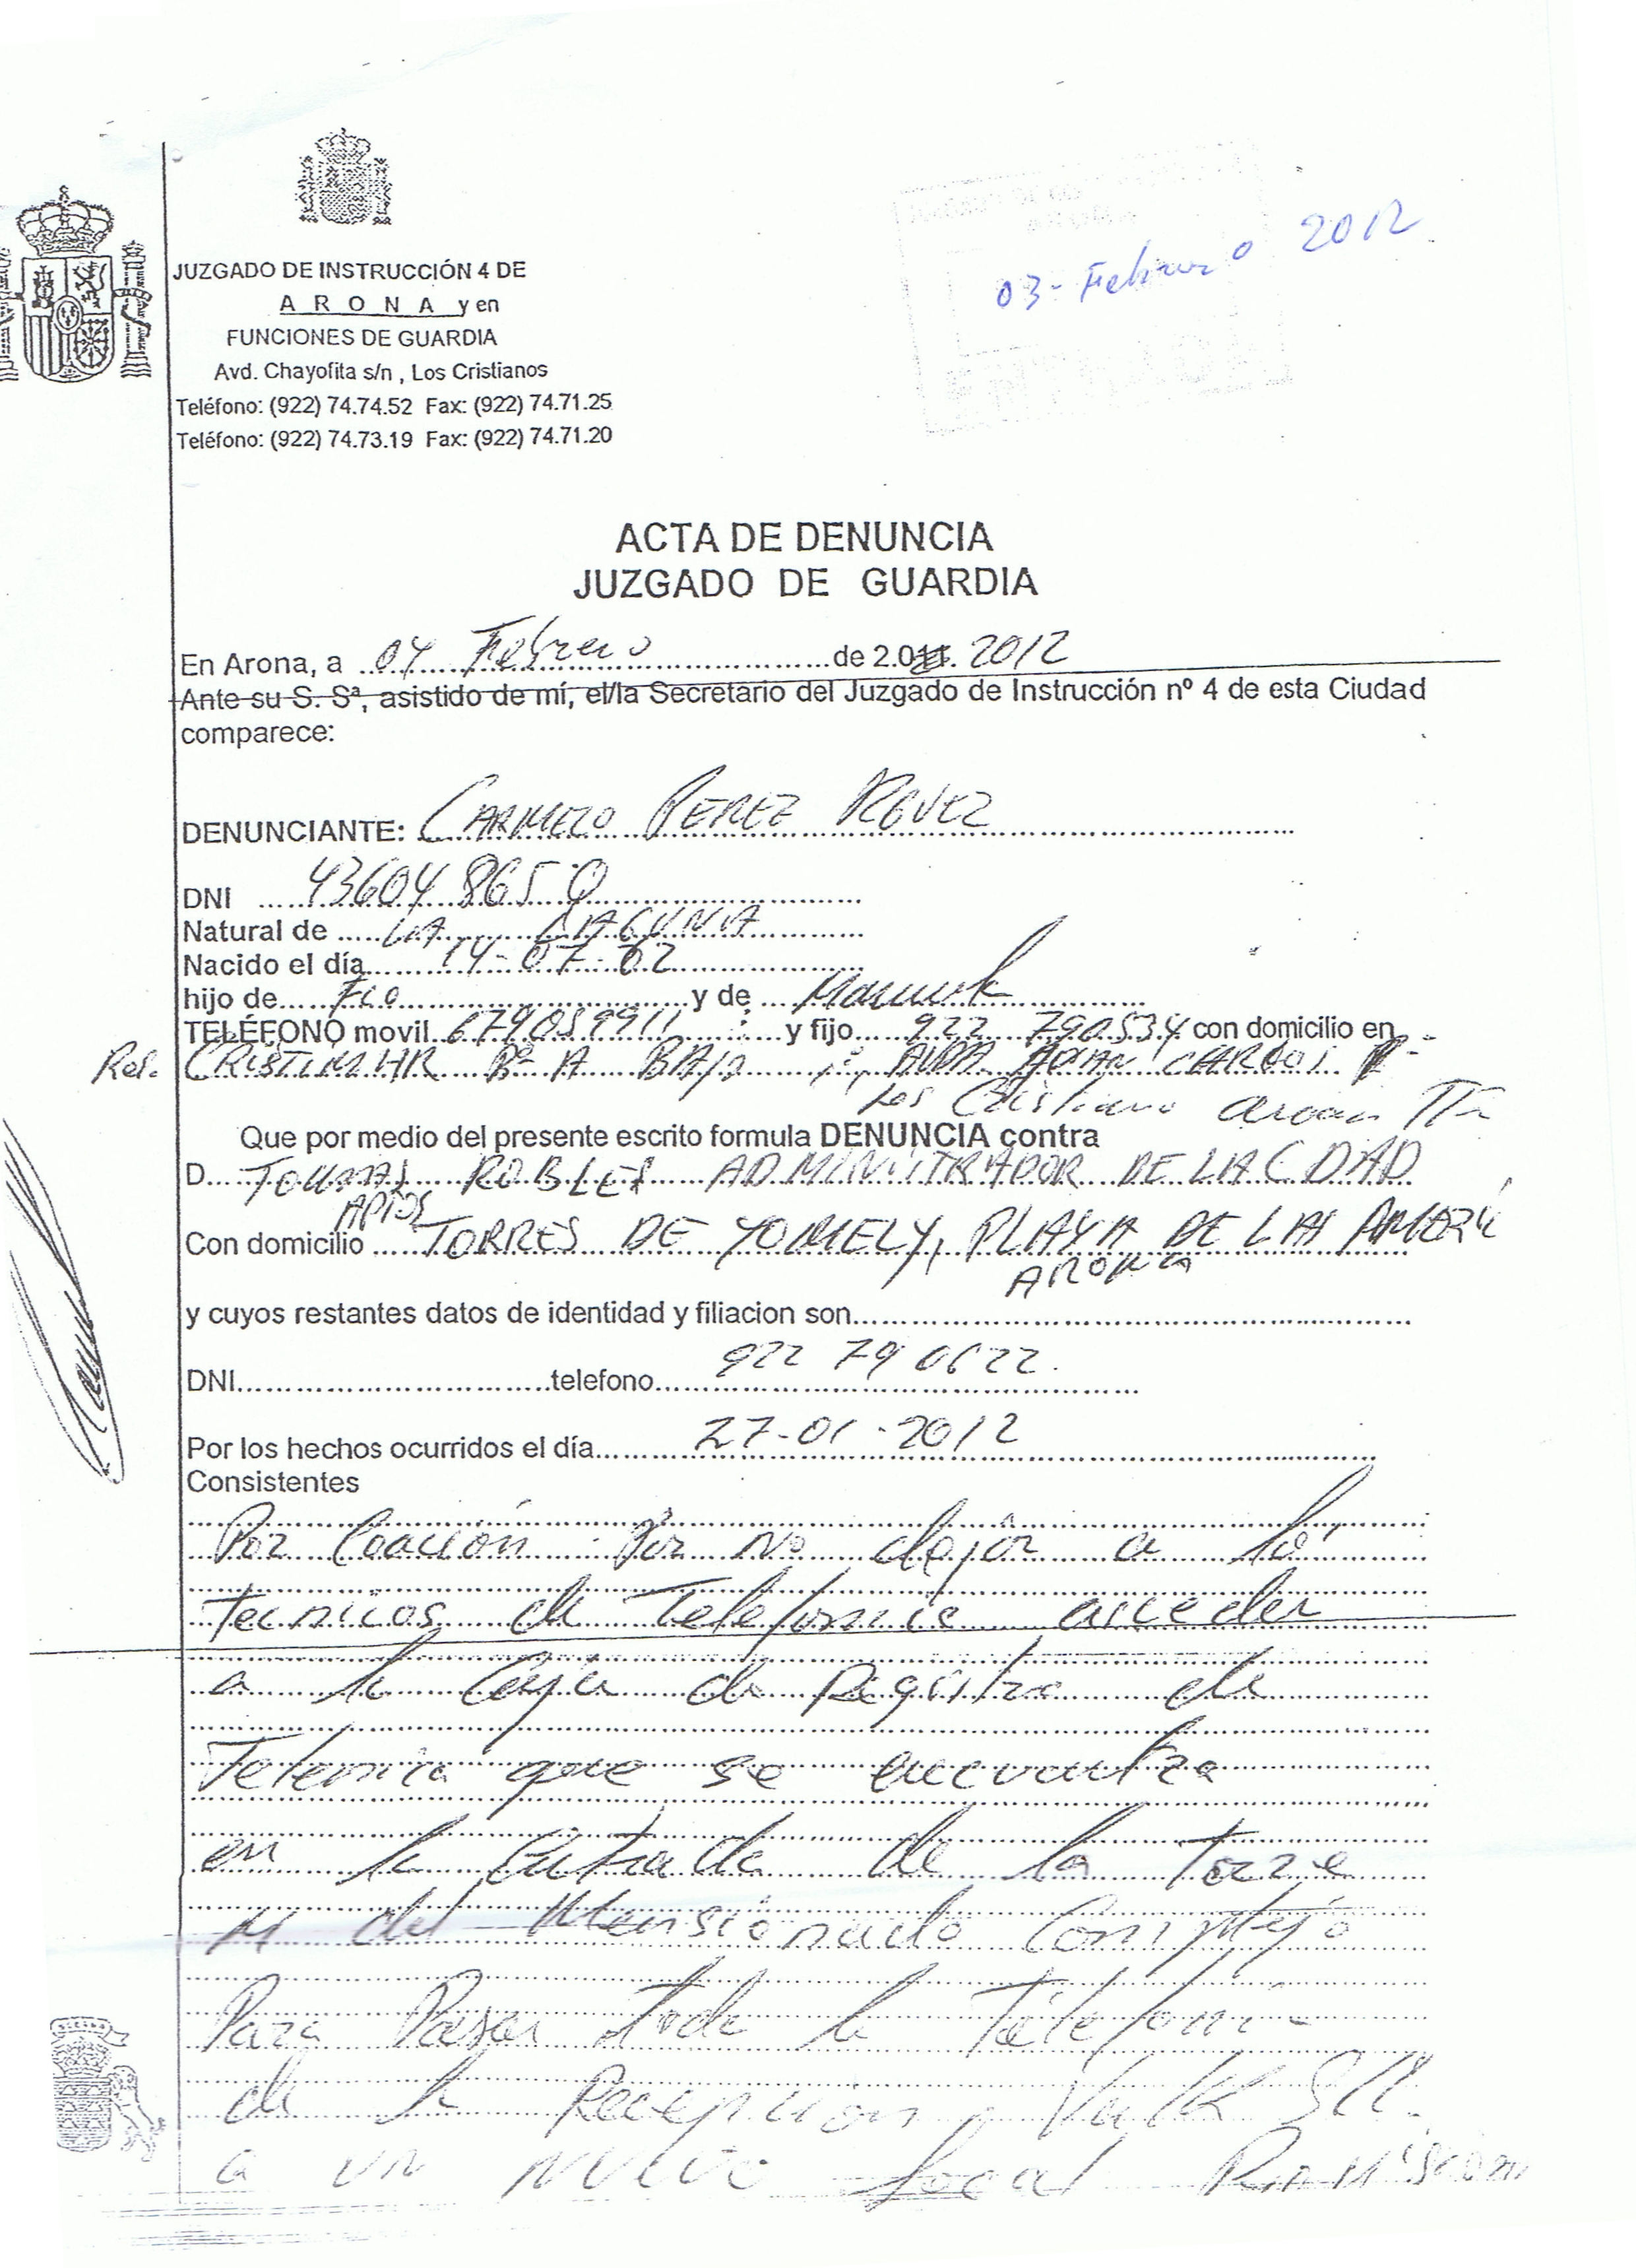 03-Febrero 2012
JUZGADO DE INSTRUCCIÓN 4 DE
A R O N A y en
FUNCIONES DE GUARDIA
Avd. Chayofita s/n , Los Cristianos
Teléfono: (922) 74.74.52 Fax: (922) 74.71.25
Teléfono: (922) 74.73.19 Fax: (922) 74.71.20
ACTA DE DENUNCIA
JUZGADO DE GUARDIA
En Arona, a 04 Febrero de 2.011. 2012
Ante su S. Sª, asistido de mí, el/la Secretario del Juzgado de Instrucción nº 4 de esta Ciudad
comparece:
DENUNCIANTE: CARMELO PEREZ
DNI 43604865Q
Natural de LA LAGUNA
Nacido el día 14-07-62
hijo de Fco y de
TELÉFONO movil 679059911 y fijo 922 790534 con domicilio en
Res. CRISTIMAR Bº A BAJO AVDA JUAN CARLOS
Los Cristiano Arona Tf
Que por medio del presente escrito formula DENUNCIA contra
D. TOMAS ROBLES ADMINISTRADOR DE LA CDAD
APTOS
Con domicilio TORRES DE YOMELY, PLAYA DE LAS AMERIC
ARONA
y cuyos restantes datos de identidad y filiacion son
DNI telefono 922 790622.
Por los hechos ocurridos el día 27-01-2012
Consistentes
Por Coacción. Por no dejar a los
tecnicos de Telefonia acceder
a la Caja de Registro de
que se encuentra
en la Entrada de la torre
M del Mensionado Complejo
Para Pasar toda la Telefonia
de la Recepcion
a un nuevo local